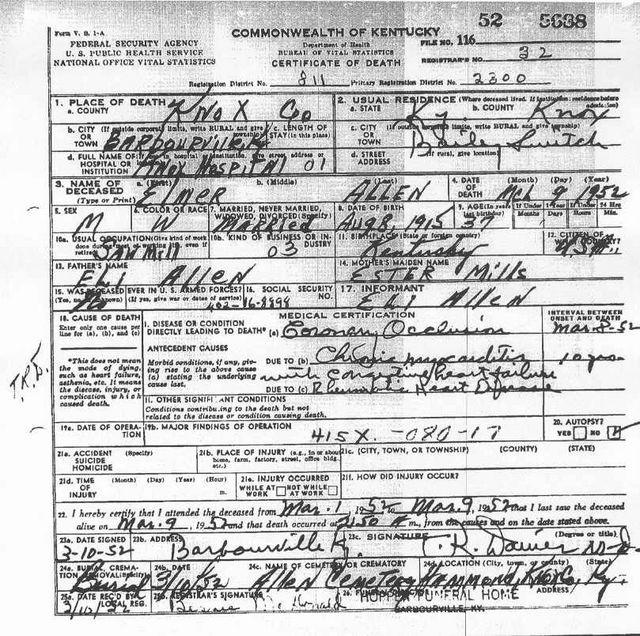 52 5638
Form V. S. 1-A
COMMONWEALTH OF KENTUCKY
FEDERAL SECURITY AGENCY
U. S. PUBLIC HEALTH SERVICE
NATIONAL OFFICE VITAL STATISTICS
Department of Health
BUREAU OF VITAL STATISTICS
CERTIFICATE OF DEATH
FILE NO. 116
REGISTRAR'S NO. 32
Registration District No. 811 Primary Registration District No. 2300
1. PLACE OF DEATH
a. COUNTY KNOX Co
2. USUAL RESIDENCE (Where deceased lived. If institution: residence before admission)
a. STATE Ky. b. COUNTY Knox
b. CITY (If outside corporate limits, write RURAL and give
OR TOWN BARBOURVILLE
c. LENGTH OF STAY (in this place)
c. CITY (If outside corporate limits, write RURAL and give township)
OR TOWN Switch
d. FULL NAME OF HOSPITAL OR INSTITUTION KNOX HOSPITAL 01
d. STREET ADDRESS (If rural, give location)
3. NAME OF DECEASED (Type or Print) a. (First) b. (Middle)
ELMER ALLEN
4. DATE OF DEATH (Month) (Day) (Year)
Mch 9 1952
5. SEX M
6. COLOR OR RACE W
7. MARRIED, NEVER MARRIED, WIDOWED, DIVORCED (Specify) Married
8. DATE OF BIRTH Aug 8, 1915
9. AGE (In years last birthday)
If Under 1 Year Months Days
If Under 24 Hrs Hours Min.
10a. USUAL OCCUPATION (Give kind of work done during most of working life, even if retired) SAW MILL
10b. KIND OF BUSINESS OR INDUSTRY 03
11. BIRTHPLACE (State or foreign country) Kentucky
12. CITIZEN OF WHAT COUNTRY?
13. FATHER'S NAME
ELI Allen
14. MOTHER'S MAIDEN NAME
ESTER Mills
15. WAS DECEASED EVER IN U. S. ARMED FORCES?
(Yes, no, unknown) (If yes, give war or dates of service) No
16. SOCIAL SECURITY NO. 402-16-8994
17. INFORMANT
ELI Allen
18. CAUSE OF DEATH
Enter only one cause per line for (a), (b), and (c)
MEDICAL CERTIFICATION
INTERVAL BETWEEN ONSET AND DEATH
I. DISEASE OR CONDITION DIRECTLY LEADING TO DEATH* (a) Coronary Occlusion Mar. 8-52
*This does not mean the mode of dying, such as heart failure, asthenia, etc. It means the disease, injury, or complication which caused death.
ANTECEDENT CAUSES
Morbid conditions, if any, giving rise to the above cause (a) stating the underlying cause last.
DUE TO (b) Chronic myocarditis 10 yrs
with congestive heart failure
DUE TO (c) Rheumatic Heart Disease
II. OTHER SIGNIFICANT CONDITIONS
Conditions contributing to the death but not related to the disease or condition causing death.
19a. DATE OF OPERATION
19b. MAJOR FINDINGS OF OPERATION
415X - 080-17
20. AUTOPSY?
YES NO
21a. ACCIDENT SUICIDE HOMICIDE (Specify)
21b. PLACE OF INJURY (e.g., in or about home, farm, factory, street, office bldg. etc.)
21c. (CITY, TOWN, OR TOWNSHIP) (COUNTY) (STATE)
21d. TIME OF INJURY (Month) (Day) (Year) (Hour) m.
21e. INJURY OCCURRED
WHILE AT WORK NOT WHILE AT WORK
21f. HOW DID INJURY OCCUR?
22. I hereby certify that I attended the deceased from Mar. 1, 1952 to Mar. 9, 1952 that I last saw the deceased
alive on Mar. 9, 1952 and that death occurred at 2:50 m., from the causes and on the date stated above.
23a. DATE SIGNED 3-10-52
23b. ADDRESS Barbourville Ky.
23c. SIGNATURE (Degree or title)
T. R. Davies M.D.
24a. BURIAL, CREMATION, REMOVAL (Specify) Burial
24b. DATE 3/10/52
24c. NAME OF CEMETERY OR CREMATORY Allen Cemetery
24d. LOCATION (City, town, or county) (State) Hammond, Knox Co, Ky.
25a. DATE REC'D BY LOCAL REG.
25b. REGISTRAR'S SIGNATURE
ADDRESS
HOPPER FUNERAL HOME
BARBOURVILLE, KY.